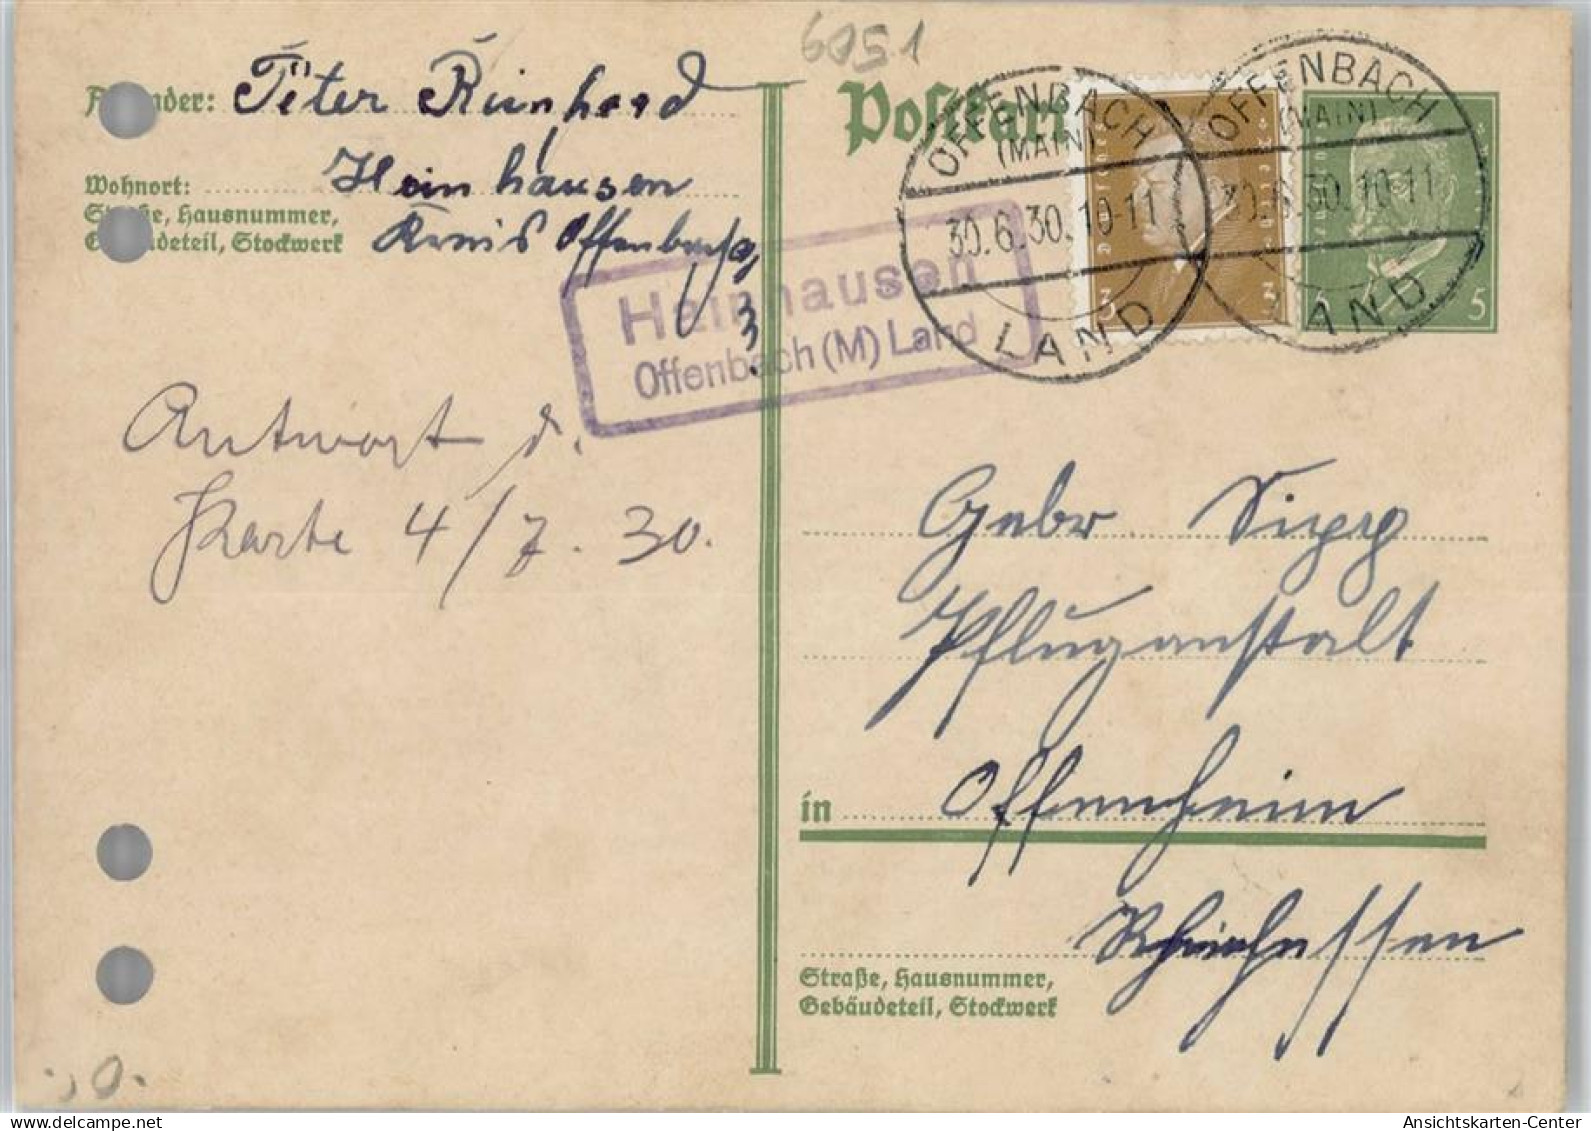 6051
Absender: Peter Reinhard
Wohnort: Hainhausen
Straße, Hausnummer,
Gebäudeteil, Stockwerk
Kreis Offenbach
Postkarte
OFFENBACH
(MAIN)
30.6.30.10-11
LAND
OFFENBACH
(MAIN)
30.6.30.10-11
LAND
Deutsches Reich
3
Deutsches Reich
5
Hainhausen
Offenbach (M) Land
Antwort d.
Karte 4/7. 30.
Gebr
Pfluganstalt
in Offenheim
Rheinhessen
Straße, Hausnummer,
Gebäudeteil, Stockwerk
Ansichtskarten-Center